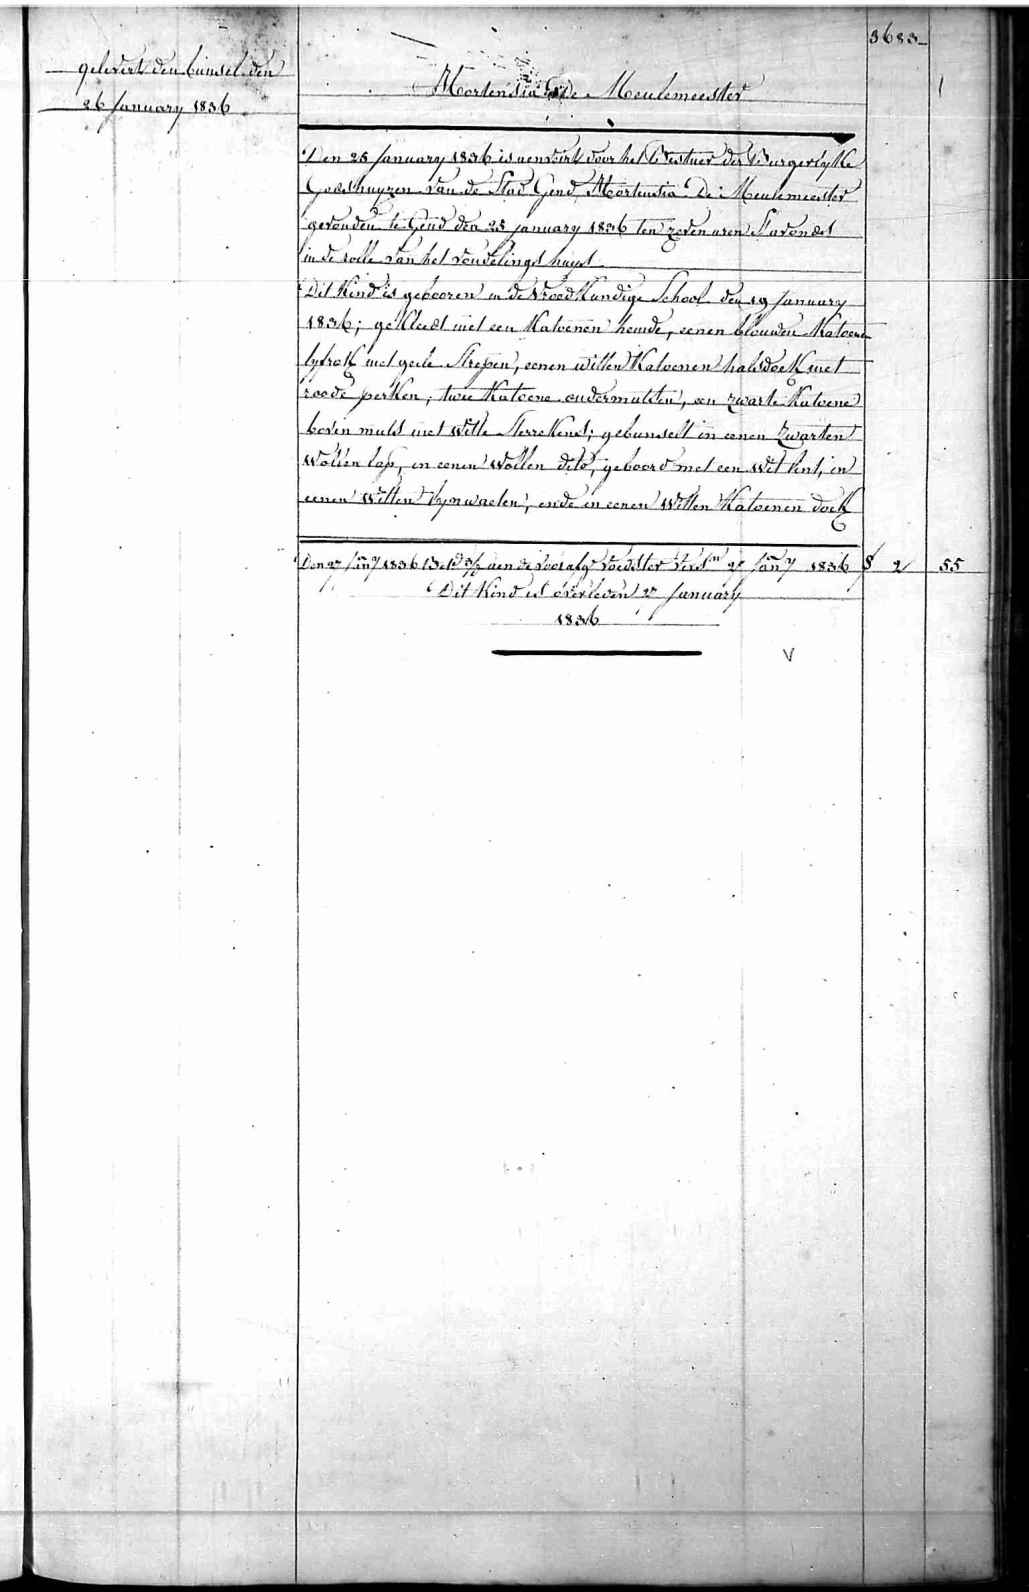 3683
gelevert den bunsel den
26 January 1836
Hortensia De Meulemeester
Den 25 January 1836 is aenveirt door het Bestuer der Burgerlyke
Godshuyzen van de Stad Gend, Hortensia De Meulemeester
gevonden te Gend den 25 january 1836 ten zeven uren S'avonds
in de rolle van het vondelings huys
Dit Kind is gebooren in de Vroedkundige School den 19 January
1836; gekleedt met een Katoenen hemde, eenen blauwen Katoene
lyfrok met geele Strepen, eenen witten Katoenen halsdoek met
roode perken, twee Katoene ondermutsen, een zwarte Katoene
boven muts met Witte Sterrekens; gebunselt in eenen Zwarten
Wollen lap, en eenen Wollen dito, geboord met een Wit lint, en
eenen Witten lynwaeten, ende in eenen Witten Katoenen doek
Den 27 Jany 1836 aen de voedster 27 Jany 1836 2 55
Dit Kind is overleden 27 January
1836
V